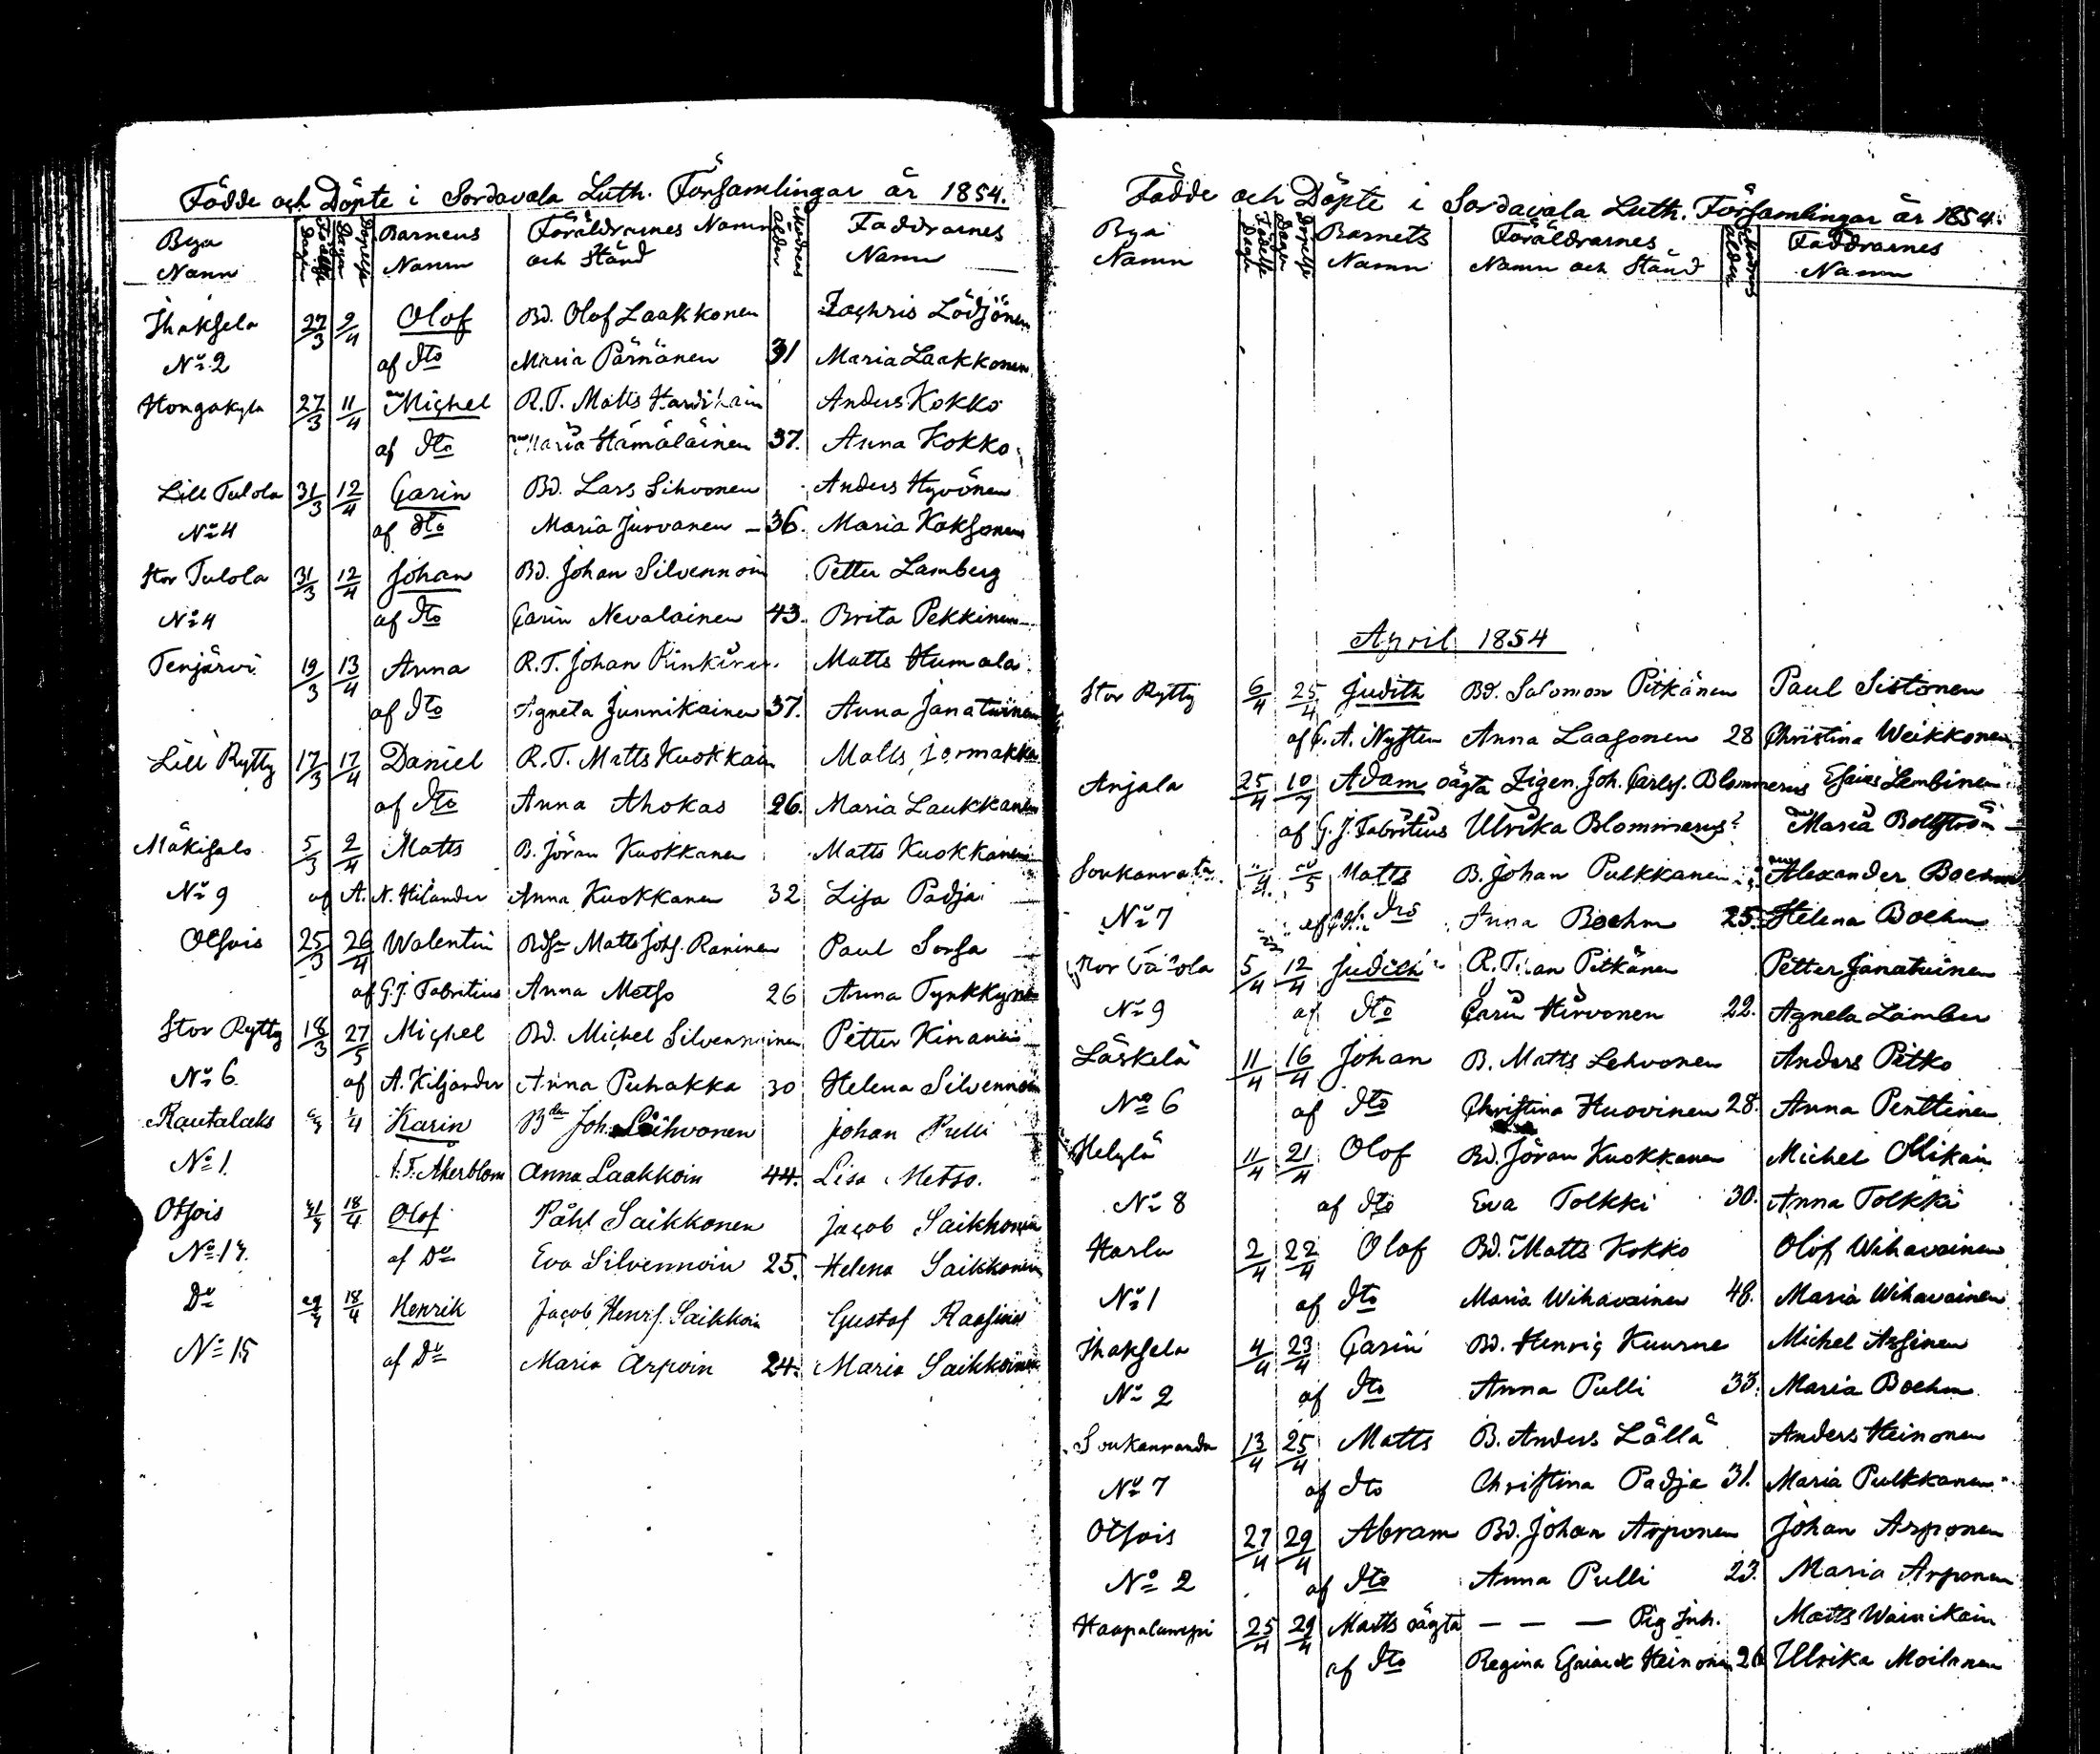 Födde och Döpte i Sordavala Luth. Församlingar år 1854.
Bya Namn Födelse Dagen Döpelse Dagen Barnens Namn Föräldrarnes Namn och Stånd Modrens ålder Faddrarnes Namn
Ihaksela 27/3 9/4 Olof Bd. Olof Laakkonen Zachris Lödjönen
No 2 af Dto Maria Pärnänen 31 Maria Laakkonen
Hongakyla 27/3 11/4 Michel R.T. Matts Anders Kokko
af Dto Maria Hämäläinen 37. Anna Kokko
Lill Tulola 31/3 12/4 Carin Bd. Lars Sihvonen Anders Hyvönen
No 4 af Dto Maria Jurvanen – 36. Maria Koksonen
Stor Tulola 31/3 12/4 Johan Bd. Johan Silvennoin Petter Lamberg
No 4 af Dto Carin Nevalainen 43. Brita Pekkinen
Tenjärvi 19/3 13/4 Anna R.T. Johan Matts Humala
af Dto Agneta Junnikainen 37. Anna Janatuinen
Lill Rytty 17/3 17/4 Daniel R.T. Matts Kuokkain Matts Jormakka
af Dto Anna Ahokas 26. Maria Laukkanen
Mäkisalo 5/3 2/4 Matts B. Jöran Kuokkanen Matts Kuokkanen
No 9 af A. N. Hilander Anna Kuokkanen 32 Lisa Padja
Otsois 25/3 26/4 Walentin Matts Johs. Raninen Paul Sorsa
af G.J. Fabritius Anna Metso 26 Anna Tynkkynen
Stor Rytty 18/3 27/5 Michel Bd. Michel Silvennoinen Petter Kinanen
No 6 af A. Kiljander Anna Puhakka 30 Helena Silvennoin
Rautalaks 1/4 Karin Bdn Joh. Sihvonen Johan Pulli
No 1. Akerblom Anna Laakkoin 44. Lisa Metso.
Otsois 18/4 Olof Påhl Saikkonen Jacob Saikkonen
No 14. af Do Eva Silvennoin 25. Helena Saikkonen
Do 18/4 Henrik Jacob Henrs. Saikkoin Gustof
No 15 af Do Maria Arpoin 24. Maria Saikkoinen
Födde och Döpte i Sordavala Luth. Församlingar år 1854.
Bya Namn Födelse Dagen Döpelse Dagen Barnets Namn Föräldrarnes Namn och Stånd Modrens ålder Faddrarnes Namn
April 1854
Stor Rytty 6/4 25/4 Judith Bd. Salomon Pitkänen Paul Sistonen
af C. A. Nysten Anna Laasonen 28 Christina Weikkonen
Anjala 25/4 Adam oägta Zigen. Joh. Carlss. Blommerus Esaias Lembinen
af G. J. Fabritius Ulrika Blommerus Maria
Soukanranta Matts B. Johan Pulkkanen Alexander Boehm
No 7 af Dto Anna Boehm 25. Helena Boehm
Stor 5/4 12/4 Judith R.T. Pitkänen Petter Janatuinen
No 9 af Dto Carin Hirvonen 22. Agneta
Läskelä 11/4 16/4 Johan B. Matts Lehvonen Anders Pitko
No 6 af Dto Christina Huovinen 28. Anna Penttinen
Helylä 11/4 21/4 Olof Bd. Jöran Kuokkanen Michel Mikain
No 8 af Dto Eva Tolkki 30. Anna Tolkki
Harlu 2/4 22/4 Olof Bd. Matts Kokko Olof Wihavainen
No 1 af Dto Maria Wihavainen 48. Maria Wihavainen
Ihaksela 4/4 23/4 Carin Bd. Henric Kuurne Michel Assinen
No 2 af Dto Anna Pulli 33. Maria Boehm
Soukanranda 13/4 25/4 Matts B. Anders Lällä Anders Heinonen
No 7 af Dto Christina Padja 31. Maria Pulkkanen
Otsois 27/4 29/4 Abram Bd. Johan Arponen Johan Arponen
No 2 af Dto Anna Pulli 23. Maria Arponen
Haapalampi 25/4 29/4 Matts oägta — — — Pig Inh. Matts Wainikain
af Dto Regina Heinonen 26 Ulrika Moilanen